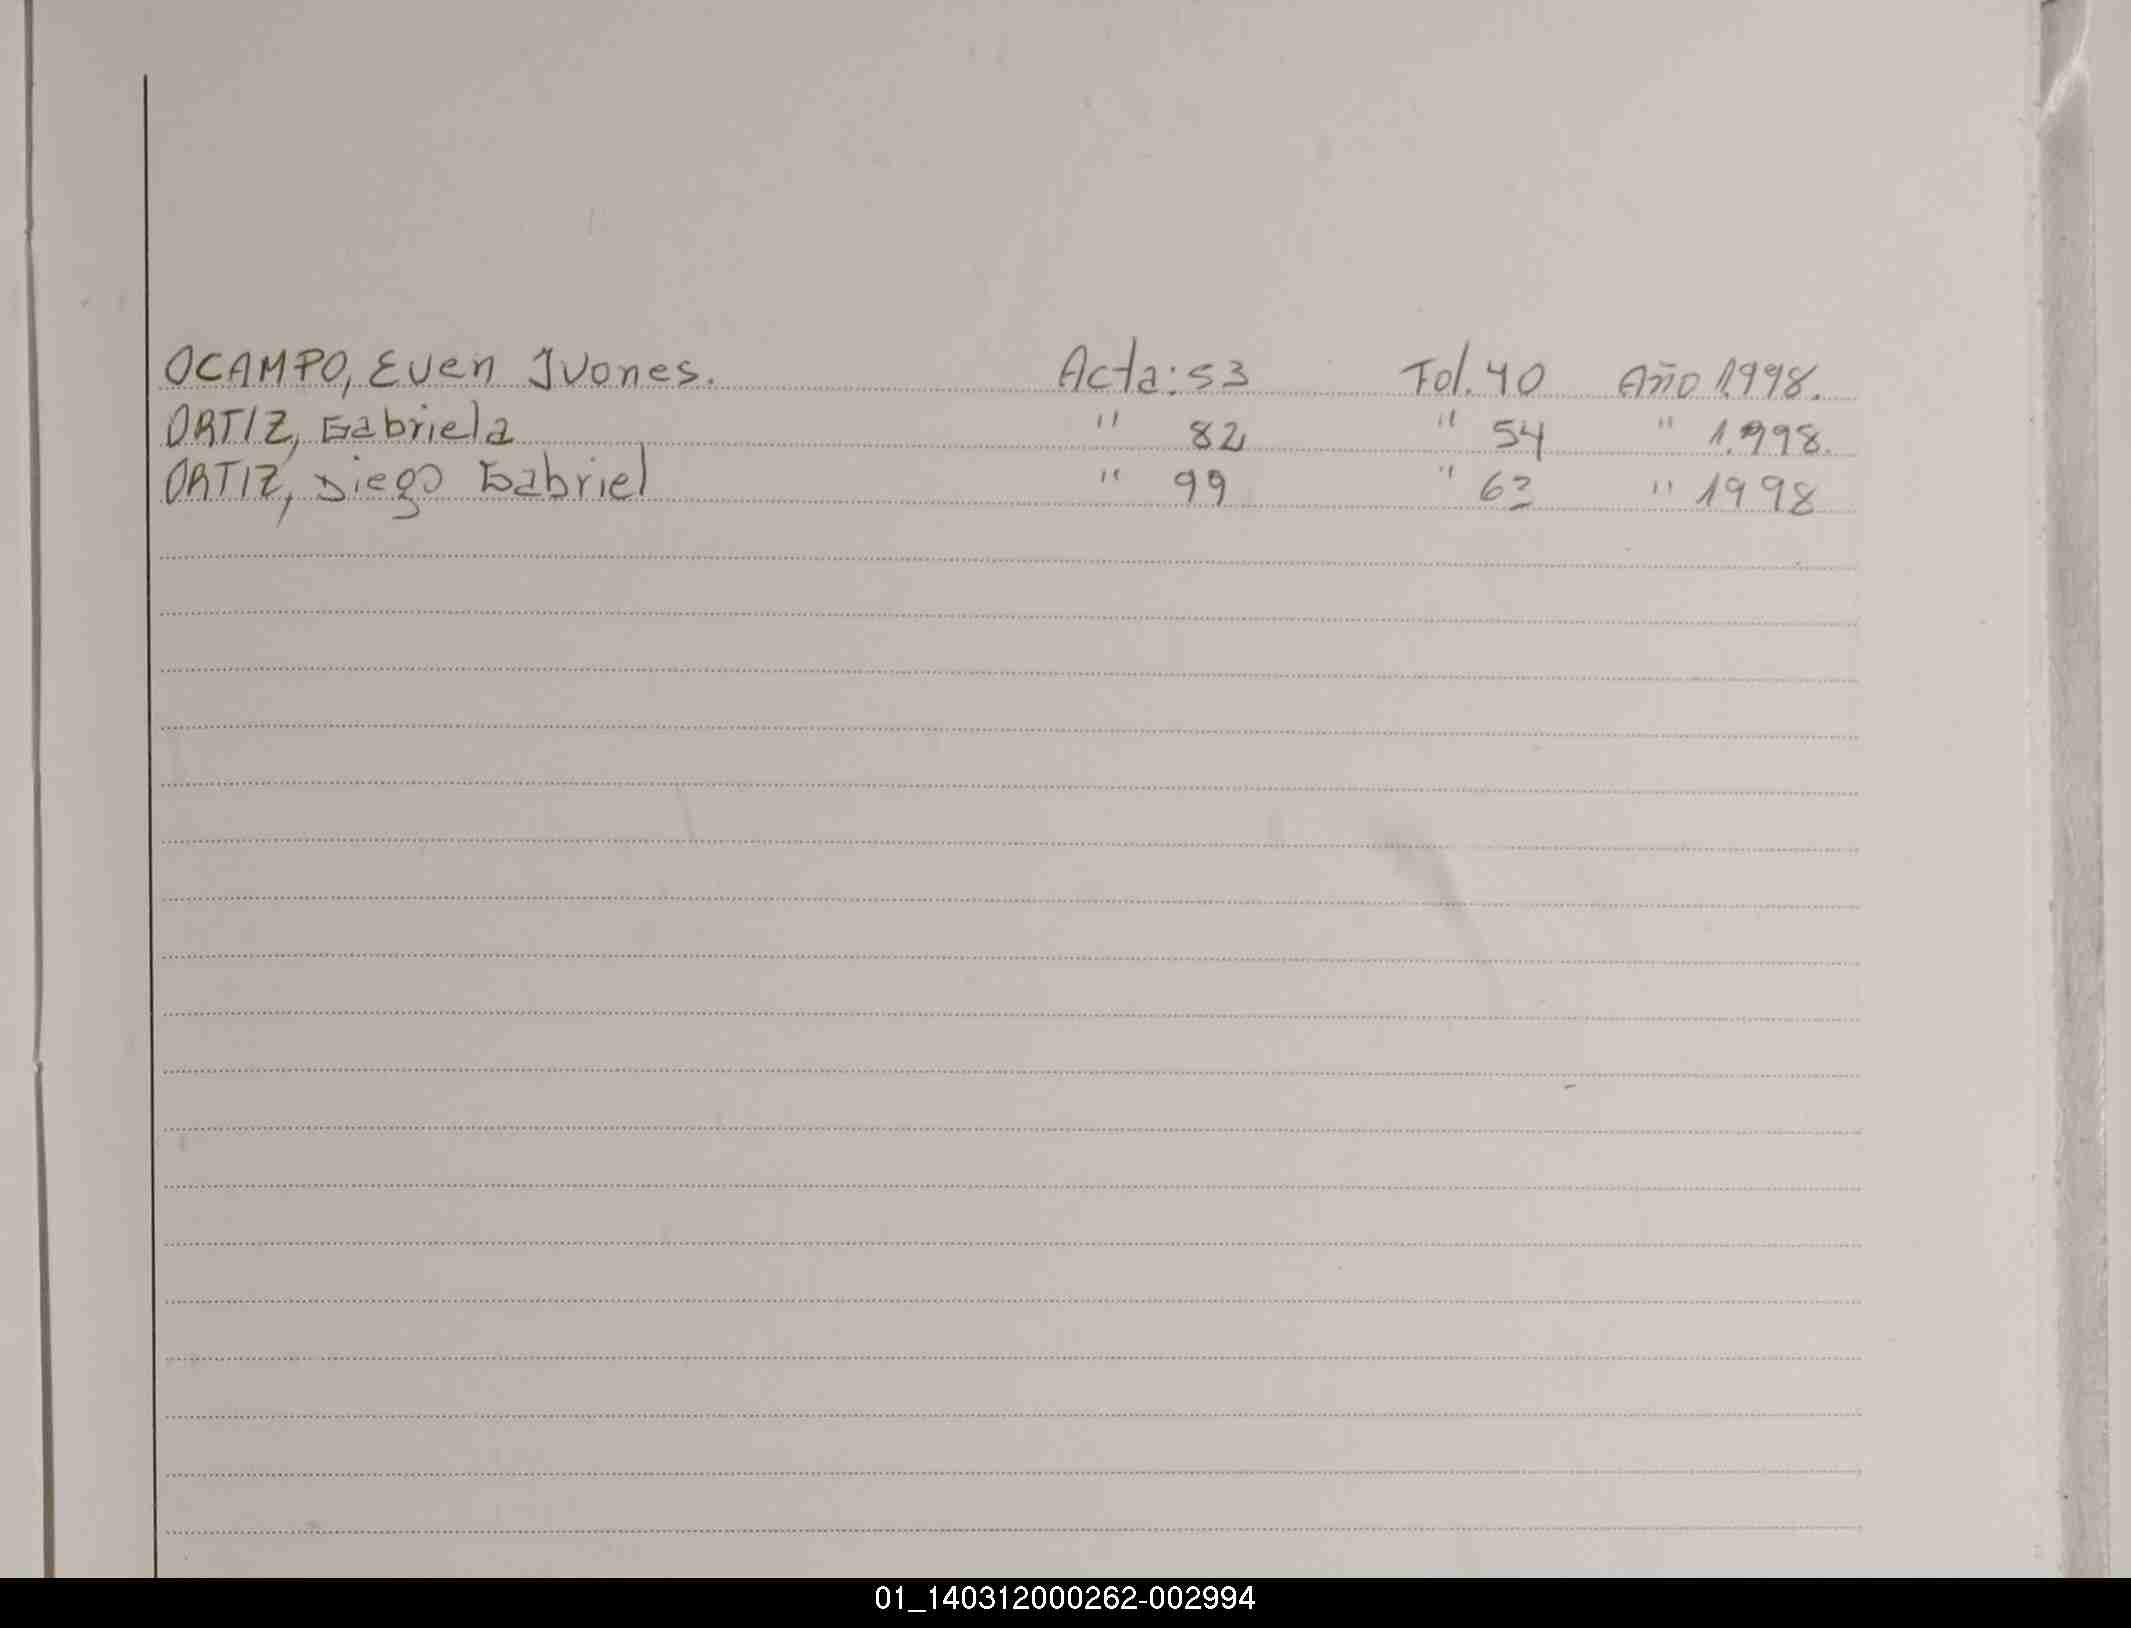 OCAMPO, Even Ivones. Acta: 53 Fol. 40 Año 1998.
ORTIZ, Gabriela " 82 " 54 " 1.998.
ORTIZ, Diego Gabriel " 99 " 63 " 1998
01_140312000262-002994